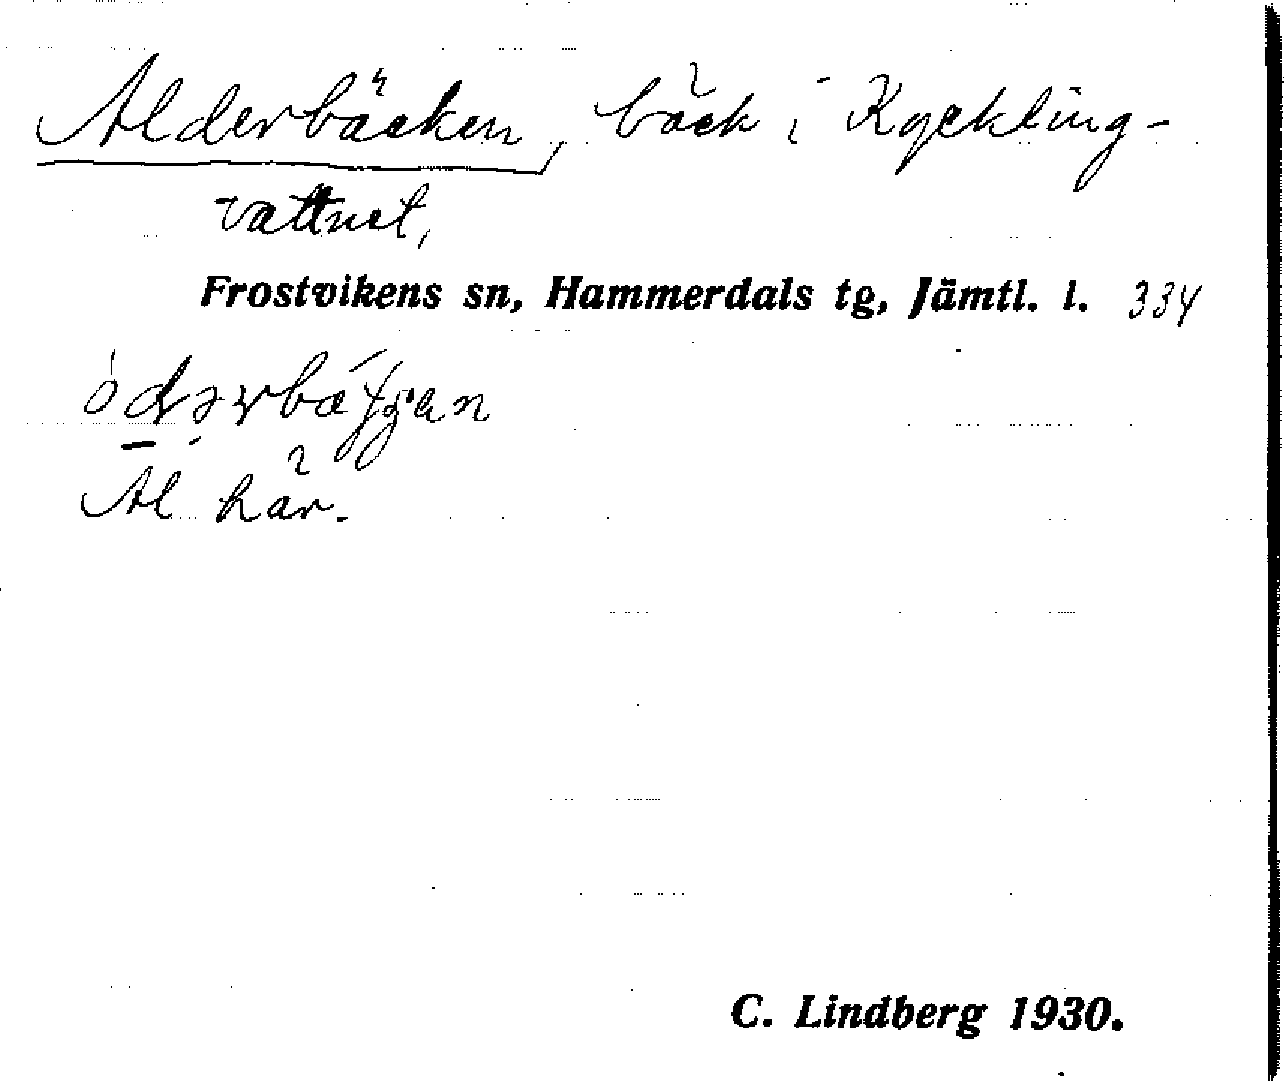 Alderbäcken, bäck i Kyckling-
vattnet,
Frostvikens sn, Hammerdals tg, Jämtl. l. 334
Al här.
C. Lindberg 1930.